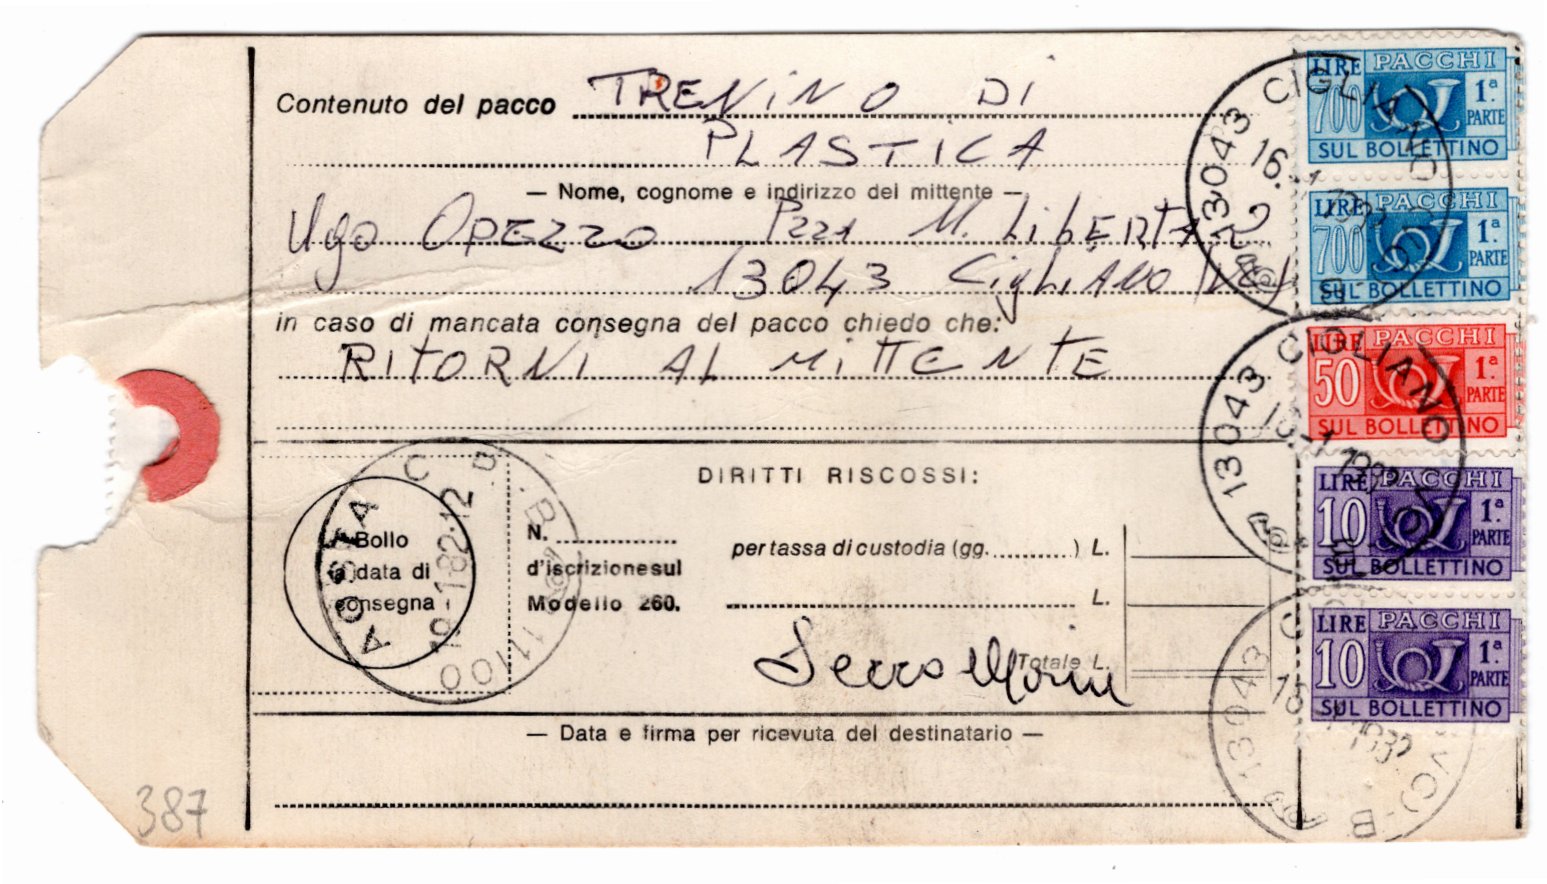 Contenuto del pacco TRENINO DI
PLASTICA
— Nome, cognome e indirizzo del mittente —
Ugo OPEZZO Pzza M. LibERTA 2
13043 CigLiANO
in caso di mancata consegna del pacco chiedo che:
RITORNI AL MITTENTE
DIRITTI RISCOSSI:
Bollo
a data di
consegna
N. ..............
d'iscrizione sul
Modello 260.
per tassa di custodia (gg. .......... ) L.
L.
Totale L.
— Data e firma per ricevuta del destinatario —
387
AOSTA C.P. - B 11100
19-1-82·12
LIRE PACCHI
700 1ª.
PARTE
SUL BOLLETTINO
LIRE PACCHI
700 1ª.
PARTE
SUL BOLLETTINO
LIRE PACCHI
50 1ª.
PARTE
SUL BOLLETTINO
LIRE PACCHI
10 1ª.
PARTE
SUL BOLLETTINO
LIRE PACCHI
10 1ª.
PARTE
SUL BOLLETTINO
13043 CIGLIANO (VC) - B
16.-1 1982
13043 CIGLIANO
16.-1 1982
13043 C (VC) - B
1982